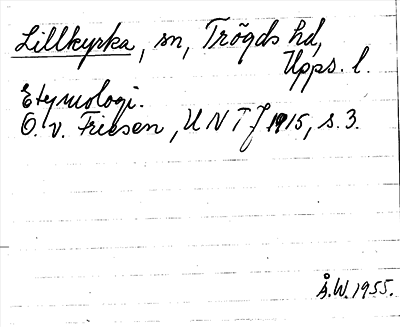 Lillkyrka, sn, Trögds hd,
Upps. l.
Etymologi.
O. v. Friesen, UNTJ 1915, s. 3.
Å.W. 1955.